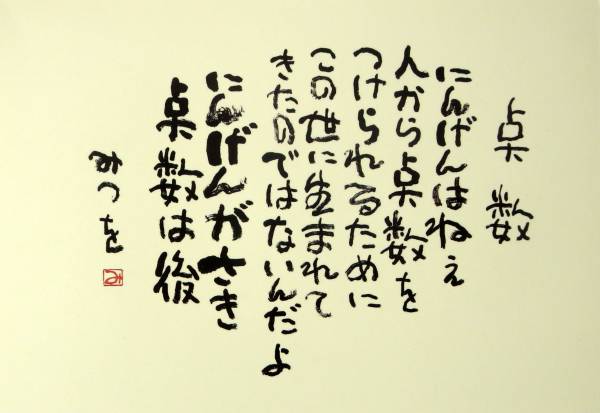 点数
にんげんはねえ
人から点数を
つけられるために
この世に生まれて
きたのではないんだよ
にんげんがさき
点数は後
みつを
み